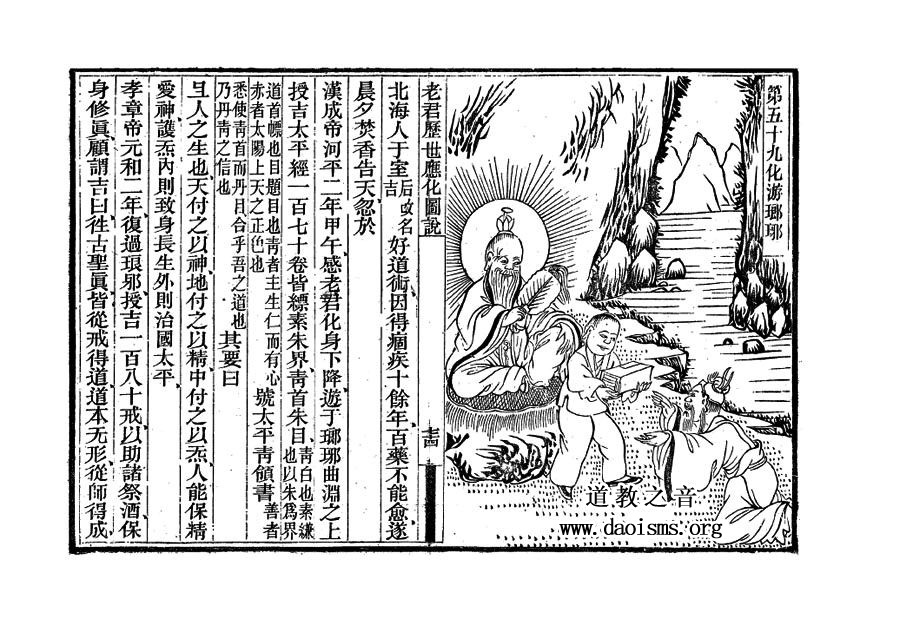 第五十九化游瑯琊
老君歷世應化圖說
北海人于室后改名吉好道術因得痼疾十餘年百藥不能愈遂
晨夕焚香告天忽於
漢成帝河平二年甲午感老君化身下降遊于瑯琊曲淵之上
授吉太平經一百七十卷皆縹素朱界靑首朱目靑白也素縑也以朱爲界
道首幖也目題目也靑者主生仁而有心
赤者太陽上天之正色也號太平靑領書善者
悉使靑首而丹目合乎吾之道也
乃丹靑之信也其要曰
且人之生也天付之以神地付之以精中付之以炁人能保精
愛神護炁內則致身長生外則治國太平
孝章帝元和二年復過琅邪授吉一百八十戒以助諸祭酒保
身修眞顧謂吉曰徃古聖眞皆從戒得道道本无形從師得成
道教之音
www.daoisms.org